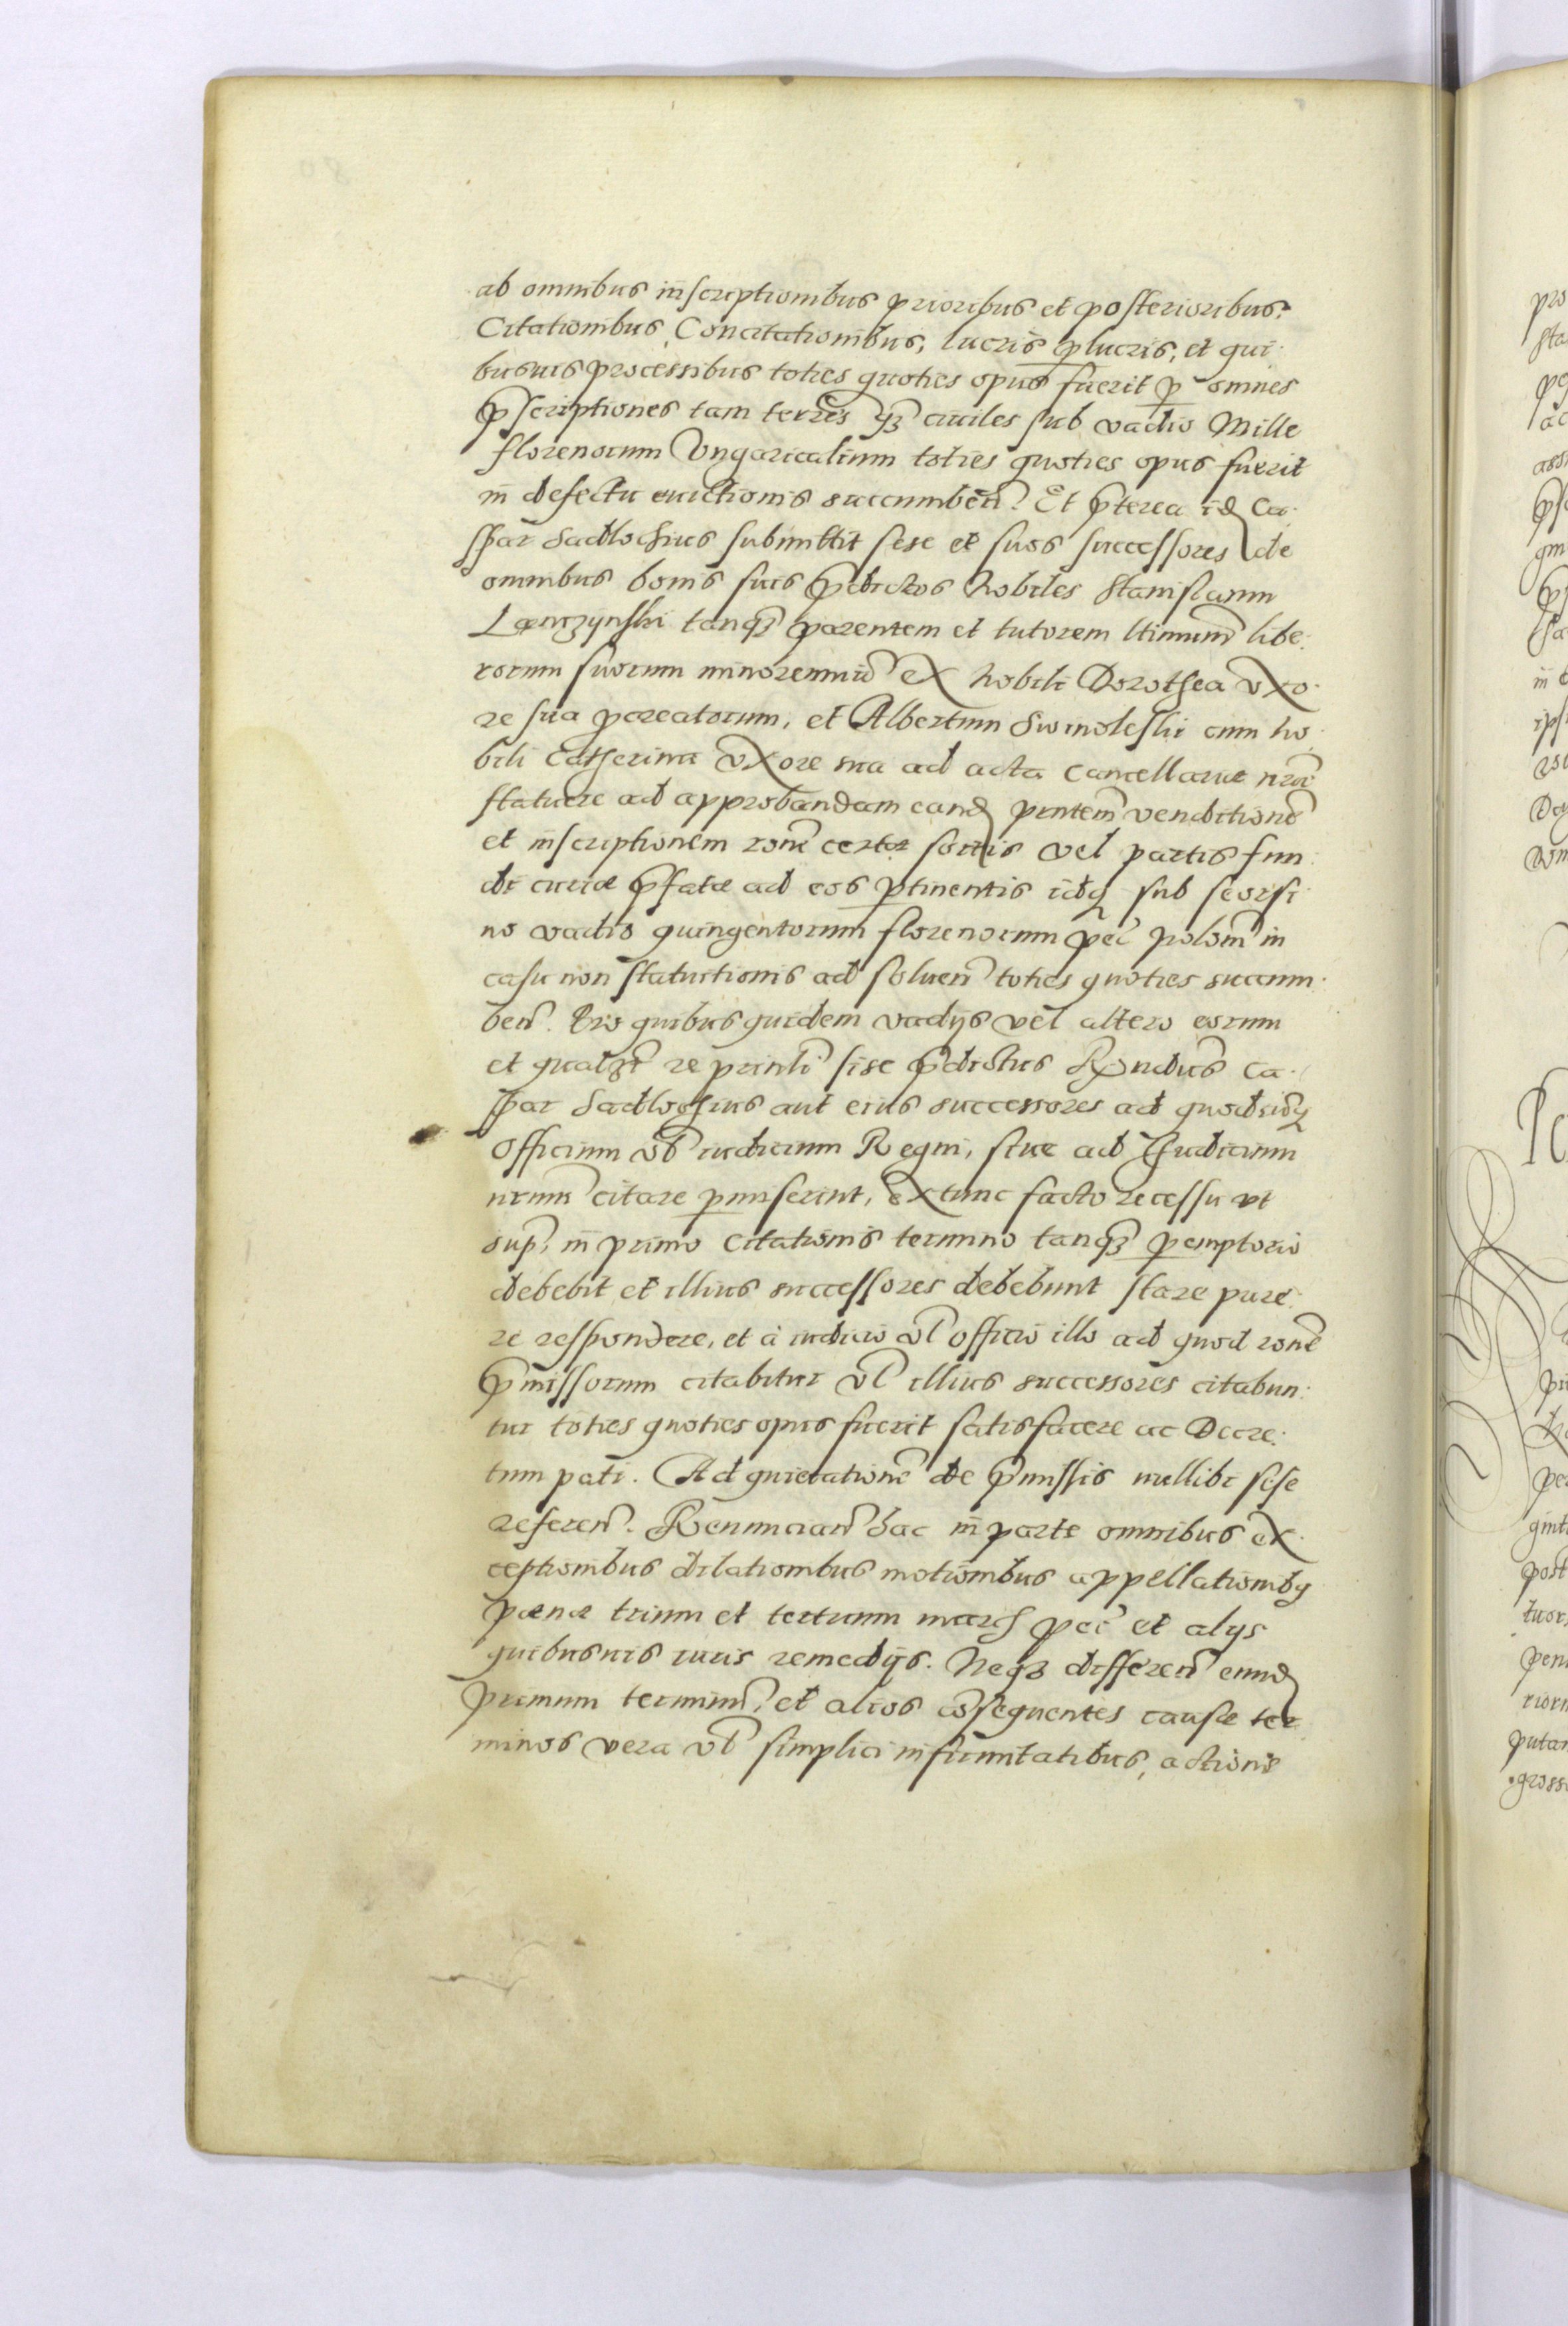 ab omnibus inscriptionibus prioribus et posterioribus,
Citationibus, Concitationibus, lucris p̱lucris, et qui-
busuis processibus toties quoties opus fuerit p̱ omnes
p̄scriptiones tam terr̄es q̃ȝ ciuiles sub vadio Mille
florenorum Vngaricalium toties quoties opus fuerit
in defectu euictionis succumbeñ. Et p̄terea id̃ Ca-
spar Sadlochius submittit sese et suos successores de
omnibus bonis suis p̄dictos Nobiles Stanislaum
Lænczynski tanq̃ȝ parentem et tutorem ltimum̃ libe-
rorum suorum minorenniũ ex Nobili Dorothea vxo-
re sua pcreatorum, et Albertum Swinoleski cum No-
bili Catherina vxore sua ad acta Cancellariæ nr̃æ
statuere ad approbandam eand̃ pn̄tem̃ venditionẽ
et inscriptionem rõne certæ sortis vel partis fun-
di curiæ p̄fatæ ad eos p̱tinentis idq̃ sub seorsi-
no vadio quingentorum florenorum pec̃ polom̃ in
casu non statuitionis ad soluen̄ toties quoties succum-
ben̄. Pro quibus quidem vadijs vel altero eorum
et qual3r̃ re prinli sise p̄dictus Rx̃ndus Ca-
spar Sadlochius aut eius successores ad quodcũq̃
officium vl̃ iudicium Regni, siue ad Iudicium
nrum̃ citare p̱miserint, extunc facto recessu vt
sup̃, in primo citationis termino tanq̃ȝ p̱emptorio
debebit et illius successores debebunt stare pare-
re respondere, et à iudicio vl̃ officio illo ad quod rõne
p̄missorum citabitur vl̃ illius successores citabun-
tur toties quoties opus fuerit satisfacere ac Decre-
tum pati. Ad quietationẽ de p̄missis nullibi sese
referen̄. Renuncian̄ hac in parte omnibus ex-
ceptionibus dilationibus motionibus appellationibq̃
pœnæ trium et tertium marc̃ pec̃ et alys
quibusuis iuris remedijs. Neqȝ differen̄ eund̃
primum terminũ, et alios cõsequentes causæ ter-
minos vera vl̃ simplici infirmitatibus, actionis